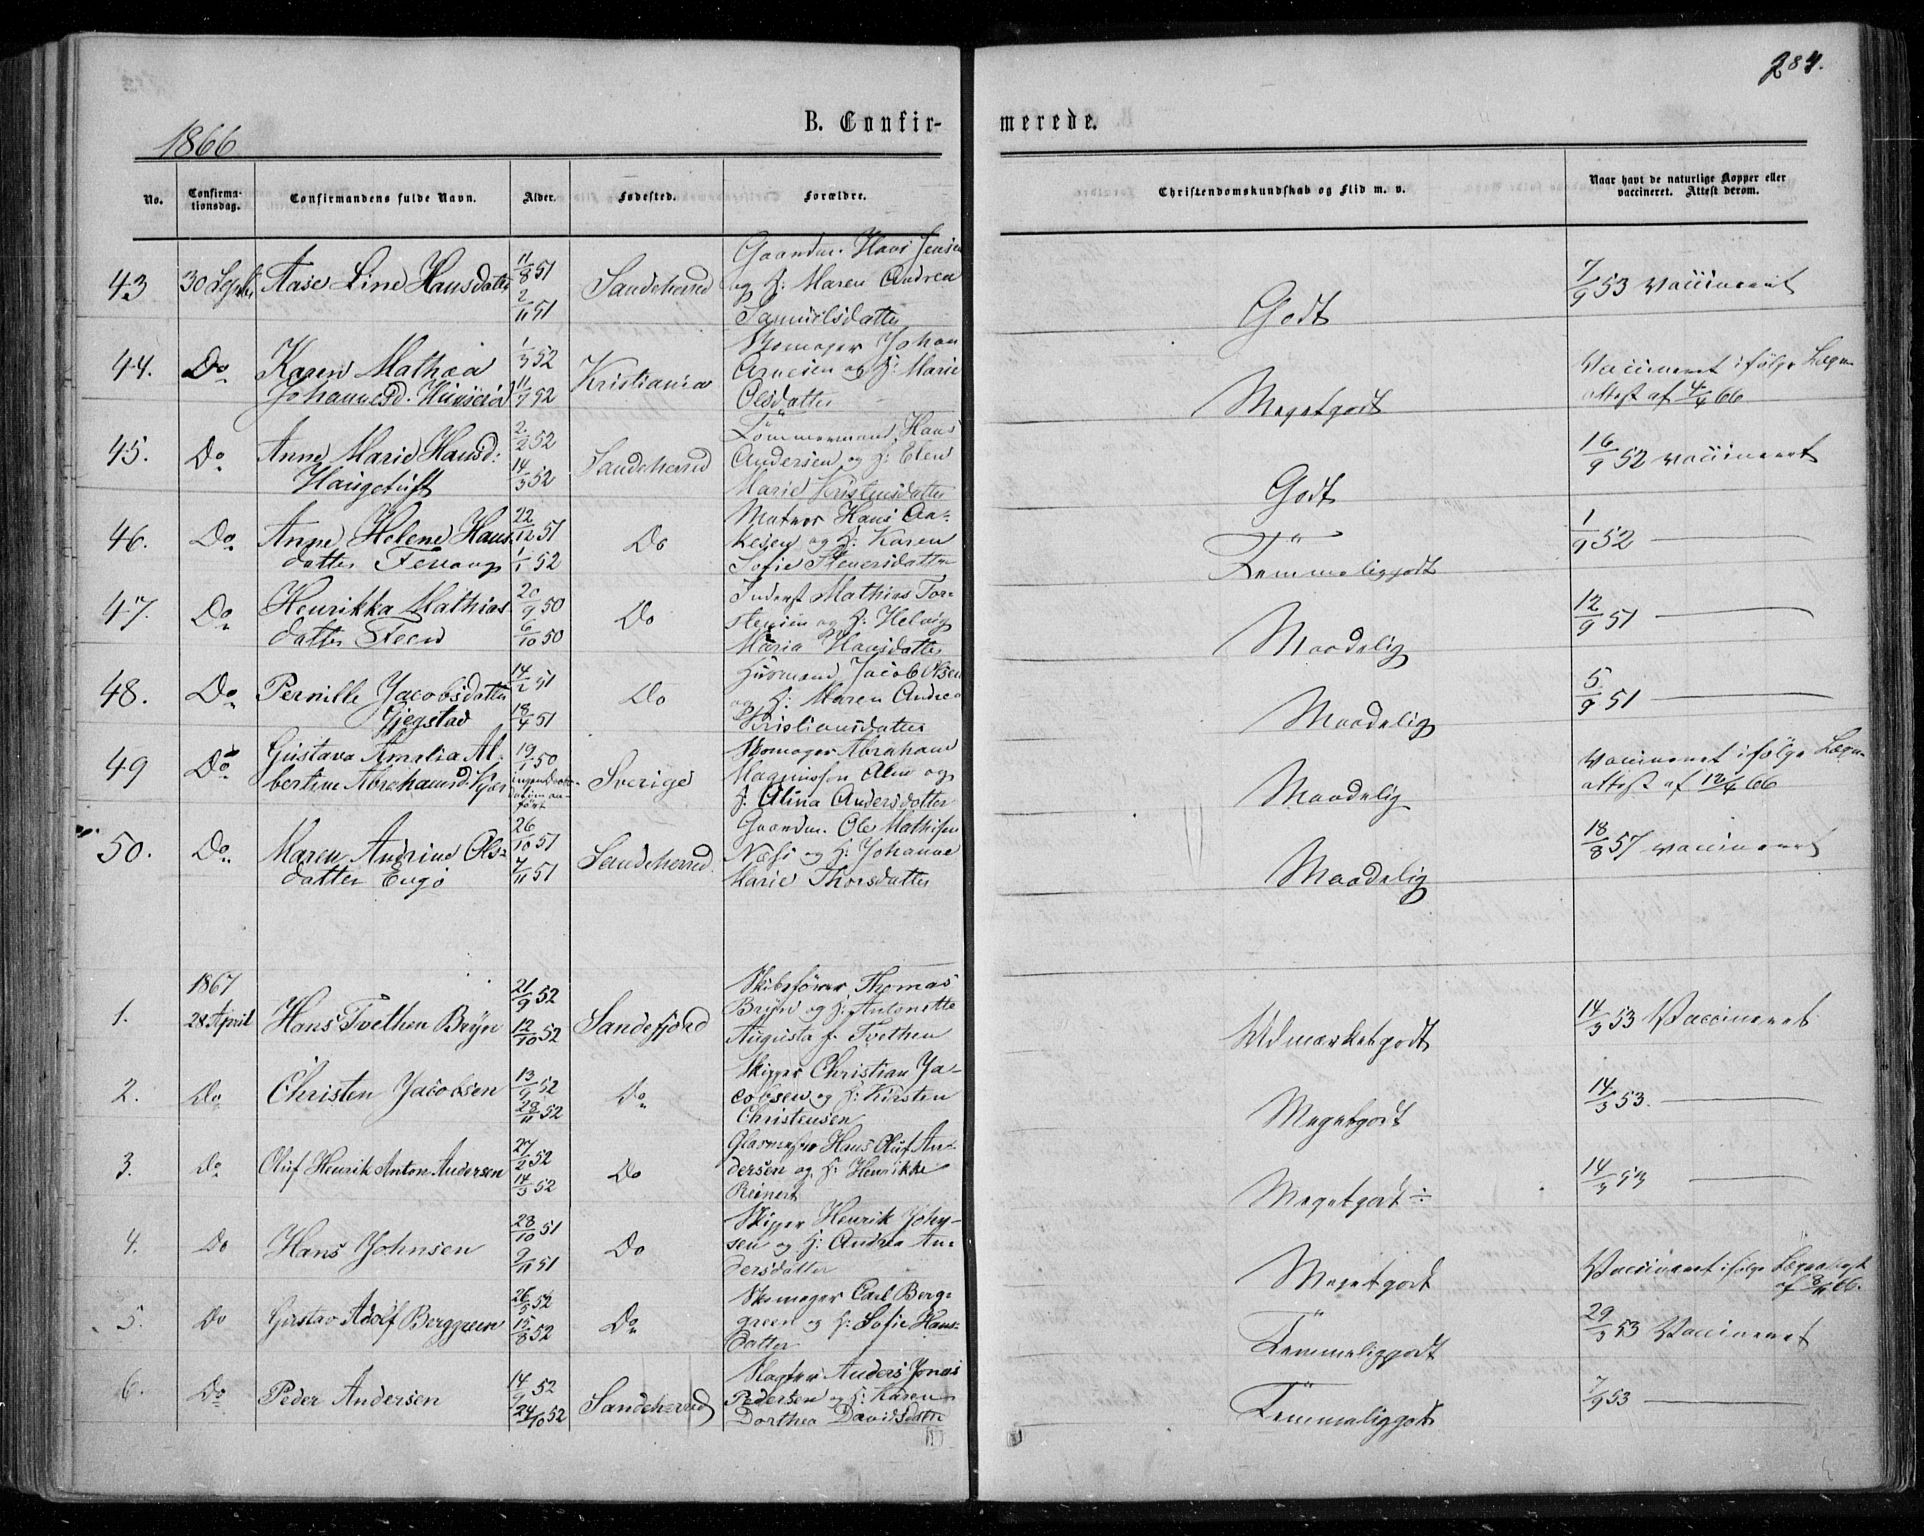 284.
B. Confirmerede.
1866
No. Confirmationsdag. Confirmandens fulde Navn. Alder. Fødested. Forældre. Christendomskundskab og Flid m. v. Naar havt de naturlige Kopper eller vaccineret. Attest derom.
43 30 Septbr Aase Line Hansdatter 11/8 51 2/11 51 Sandeherred Gaardm. Hans Jensen og H: Maren Andrea Samuelsdatter Godt 7/9 53 vaccineret
44. Do Karen Mathea Johannesd. 1/3 52 11/4 52 Kristiania Skomager Johan Arnesen og H: Marie Olsdatter Megetgodt Vaccineret ifølge Lægeattest af 4/4 66
45. Do Anne Marie Hansd: Haugetuft 2/2 52 14/3 52 Sandeherred Tømmermand Hans Andersen og H: Elen Marie Kristensdatter Godt 16/9 52 vaccineret
46. Do Anne Helene Hansdatter Fevang 22/12 51 1/1 52 Do Matros Hans Aakesen og H: Karen Sofie Siversdatter Temmeliggodt 1/9 52
47. Do Henrikka Mathiasdatter Feen 20/9 50 6/10 50 Do Inderst Mathias Torstensen og H: Helvig Maria Hansdatter Maadelig 12/9 51
48. Do Pernille Jacobsdatter Gjegstad 14/2 51 18/4 51 Do Husmand Jacob Olsen og H: Maren Andrea Kristiansdatter Maadelig 5/9 51
49 Do Gustava Amalia Albertine Abrahamsd. Kjær 19/1 50 ingen Daabsdatum anført Sverige Skomager Abraham Magnussen Alm og H. Alina Andersdatter Maadelig Vaccineret ifølge Lægeattest af 12/4 66
50. Do Maren Andrine Olsdatter Engø 26/10 51 7/11 51 Sandeherred Gaardm. Ole Mathisen Næss og H: Johanne Marie Thorsdatter Maadelig 18/8 57 vaccineret
1867
1. 28 April Hans Tvethen Bryn 21/9 52 12/10 52 Sandefjord Skibsfører Thomas Bryn og H: Antonette Augusta f. Tvethen Udmærketgodt 14/3 53 Vaccineret
2. Do Christen Jacobsen 13/9 52 28/11 52 Do Skipper Christian Jacobsen og H: Kirsten Christensen Megetgodt 14/3 53.
3. Do Oluf Henrik Anton Andersen 27/2 52 14/3 52 Do Glasmester Hans Oluf Andersen og H: Henrikke Reinert Megetgodt ÷ 14/3 53
4. Do Hans Johnsen 28/10 51 9/11 51 Do Skipper Henrik Johnsen og H: Andrea Andersdatter Megetgodt Vaccineret ifølge Lægeattest af 8/11 66.
5. Do Gustav Adolf Berggreen 26/5 52 15/8 52 Do Skomager Carl Berggreen og H: Sofie Hansdatter Temmeliggodt 29/3 53 Vaccineret
6. Do Peder Andersen 14/9 52 24/10 52 Sandeherred Slagter Anders Jonas Pedersen og H: Karen Dorthea Davidsdatter Temmeliggodt 7/9 53